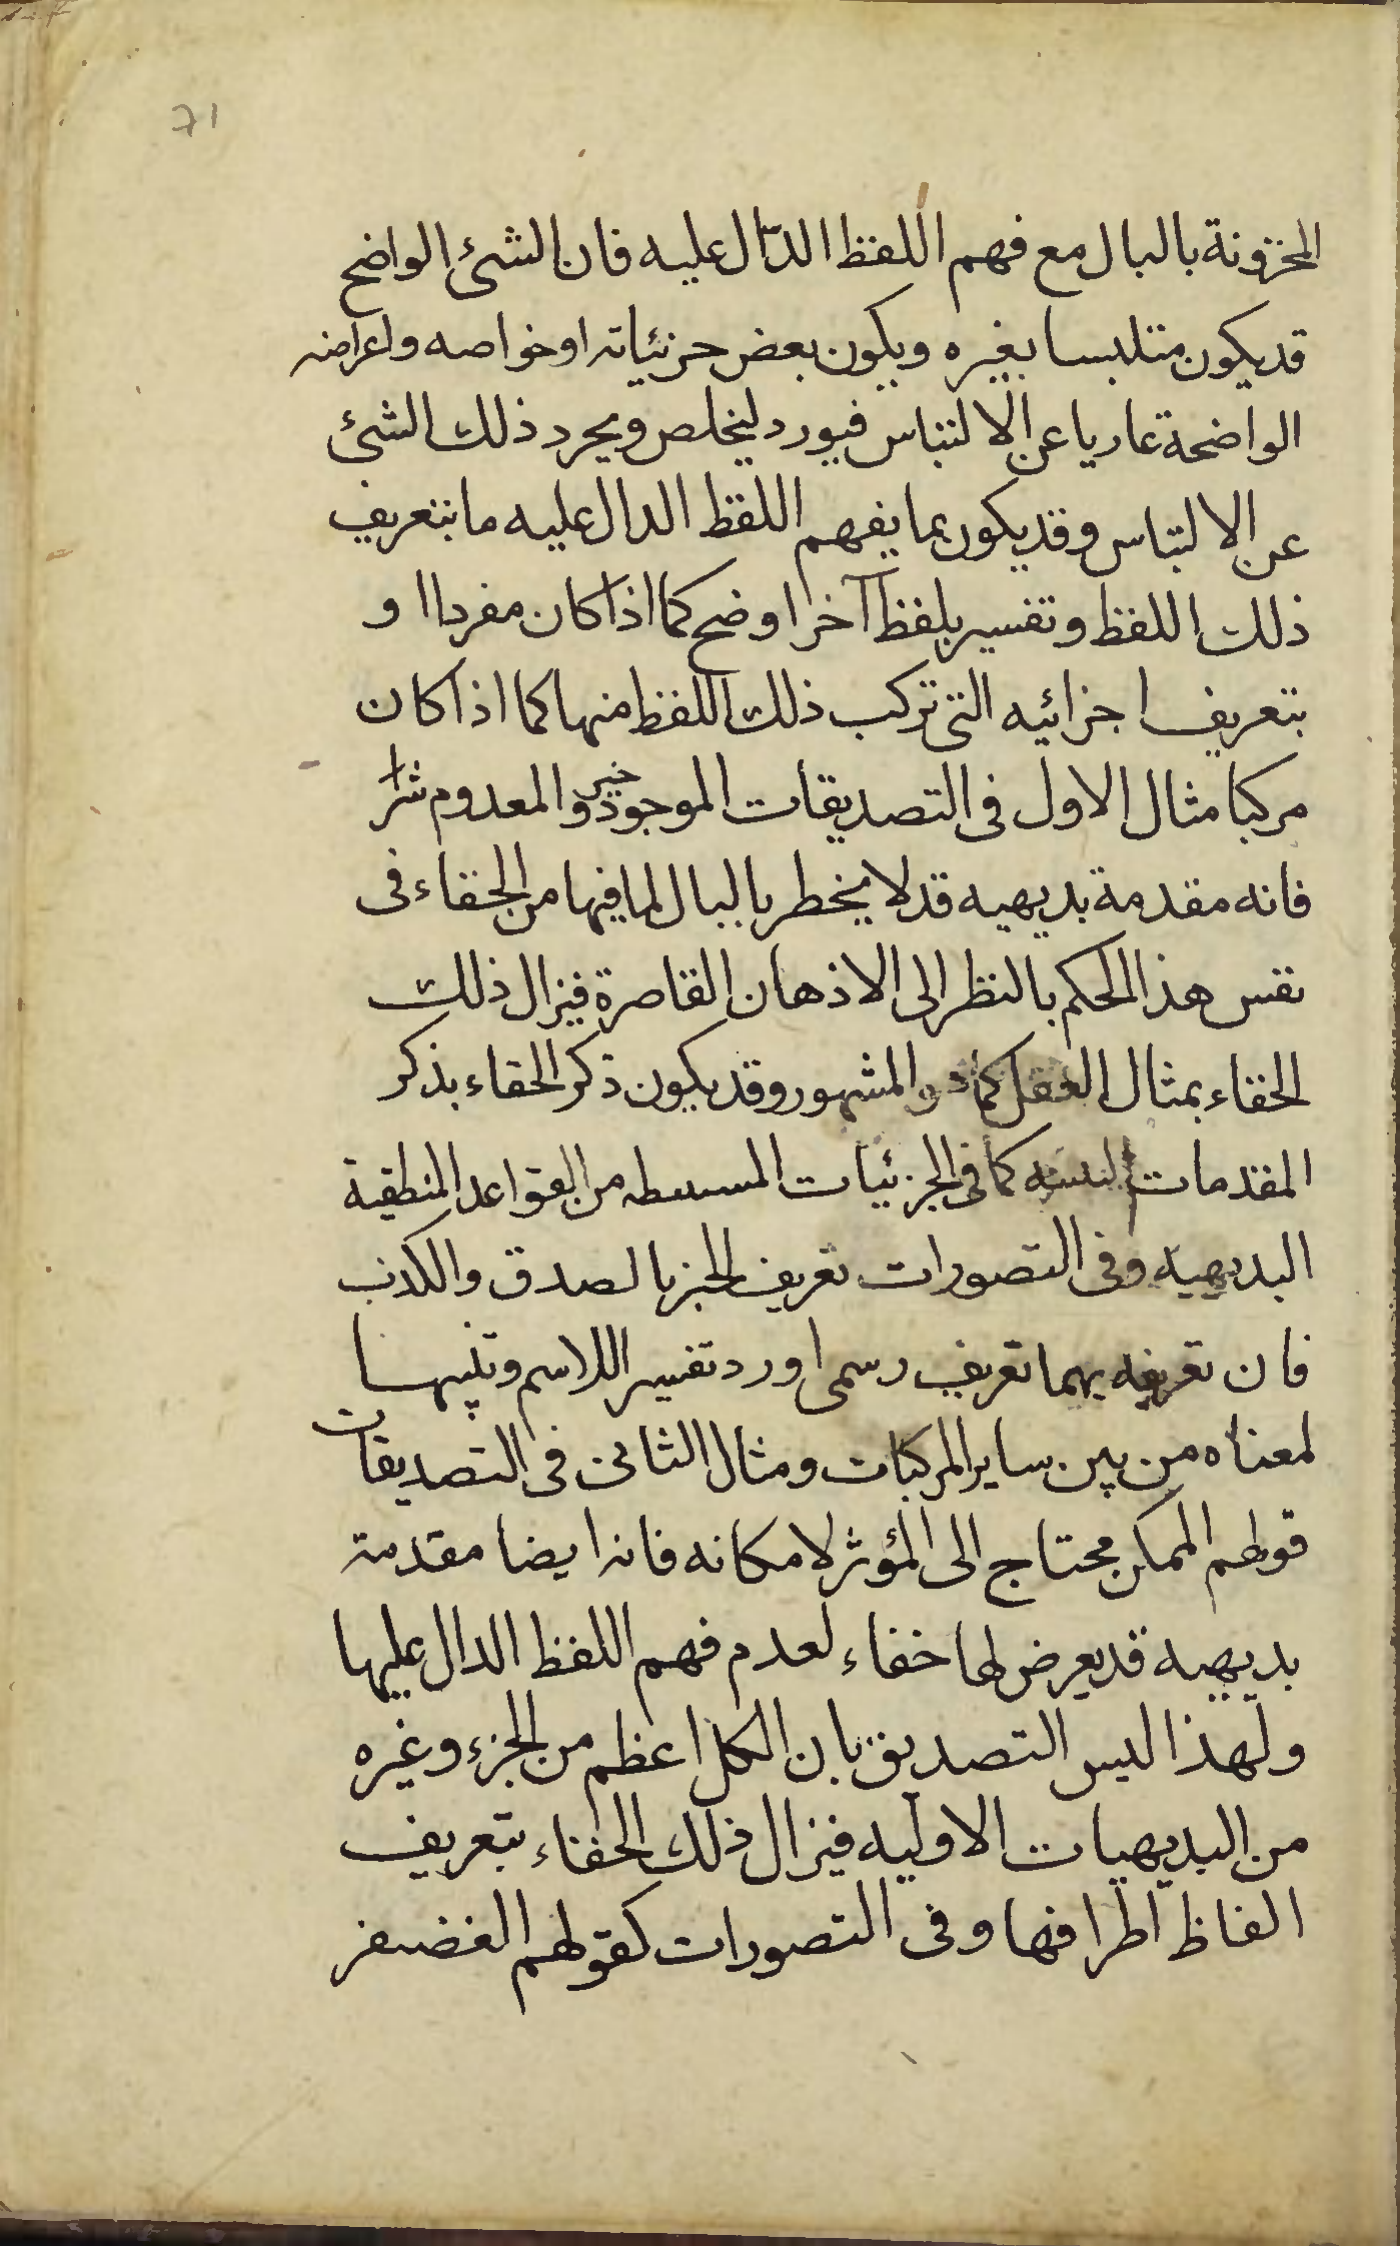 71
المخزونة بالبال مع فهم اللفظ الدّال عليه فان الشئ الواضح
قد يكون متلبسا بغيره ويكون بعض جزئياته او خواصه واعراضه
الواضحة عاريا عن الالتباس فيورد ليخلص ويجرد ذلك الشئ
عن الالتباس وقد يكون بما يفهم اللفظ الدال عليه ما بتعريف
ذلك اللفظ وتفسير بلفظ آخر اوضح كما اذا كان مفردا او
بتعريف اجزائيه التى تركب ذلك اللفظ منها كما اذا كان
مركبا مثال الاول فى التصديقات الموجود خير والمعدوم شر
فانه مقدمة بديهيه قد لا يخطر بالبال لما فيها من الخفاء فى
نفس هذا الحكم بالنظر الى الاذهان القاصرة فيزال ذلك
الخفاء بمثال كما المشهور وقد يكون ذكر الخفاء بذكر
المقدمات كما فى الجزئيات من القواعد المنطقية
البديهيه وفى التصورات تعريف الخبر بالصدق والكذب
فان تعريفه بهما تعريف رسمى اورد تفسير اللاسم وتنبيها
لمعناه من بين ساير المركبات ومثال الثانى فى التصديقات
قولهم الممكن محتاج الى المؤثر لامكانه فانه ايضا مقدمة
بديهيه قد يعرض لها خفاء لعدم فهم اللفظ الدال عليها
ولهذا ليس التصديق بان الكل اعظم من الجزء وغيره
من البديهيات الاوليه فيزال ذلك الخفاء بتعريف
الفاظ اطرافها وفى التصورات كقولهم الغضنفر